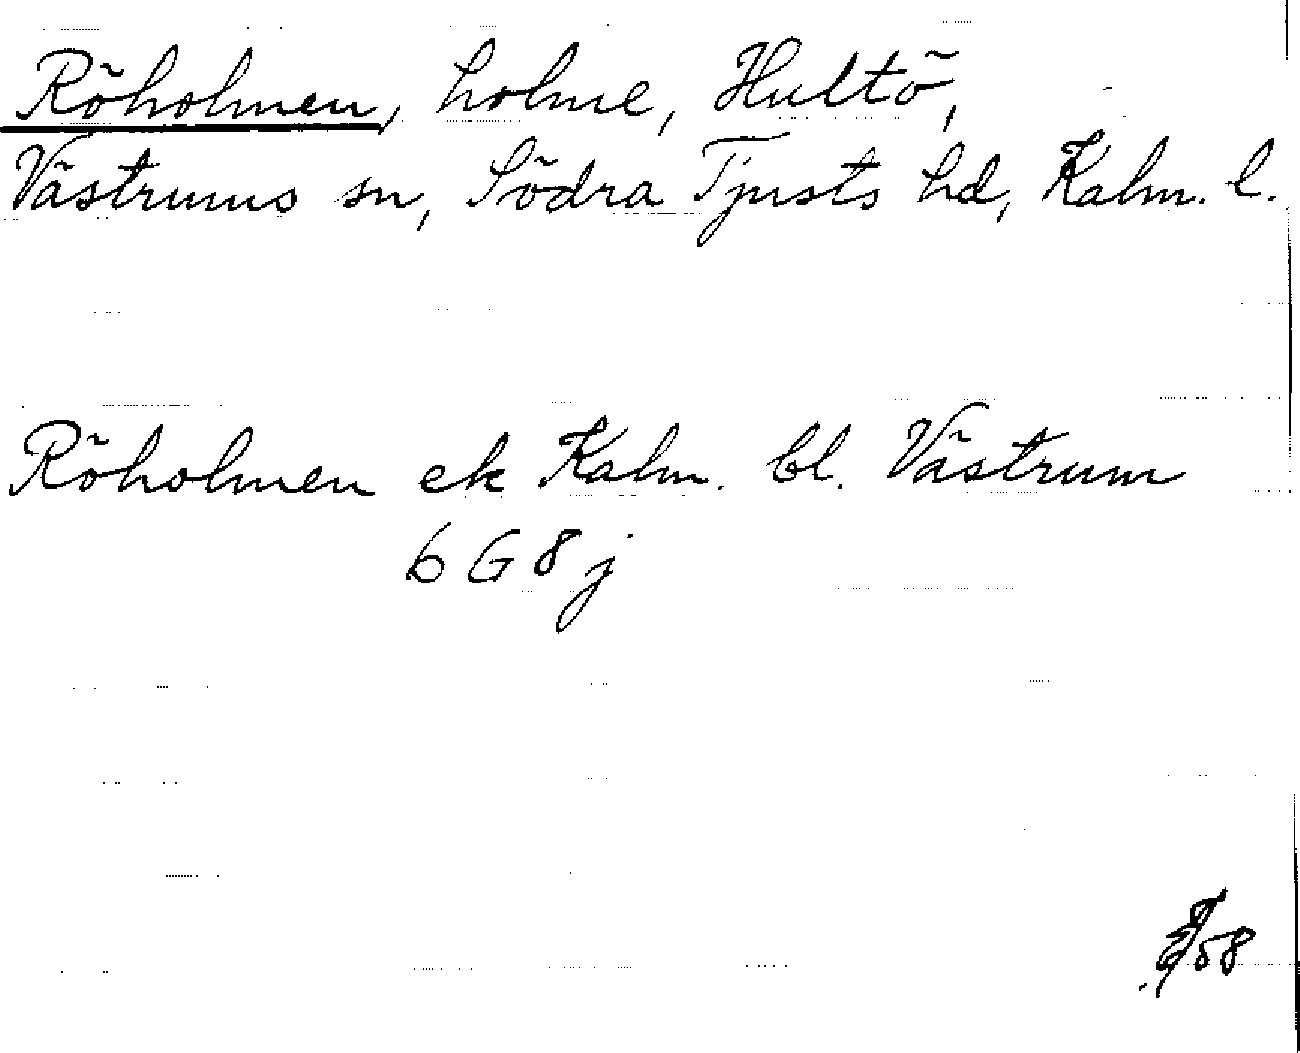 Röholmen, holme, Hultö,
Västrums sn, Södra Tjusts hd, Kalm. l.
Röholmen ek Kalm. bl. Västrum
6 G 8 j
58